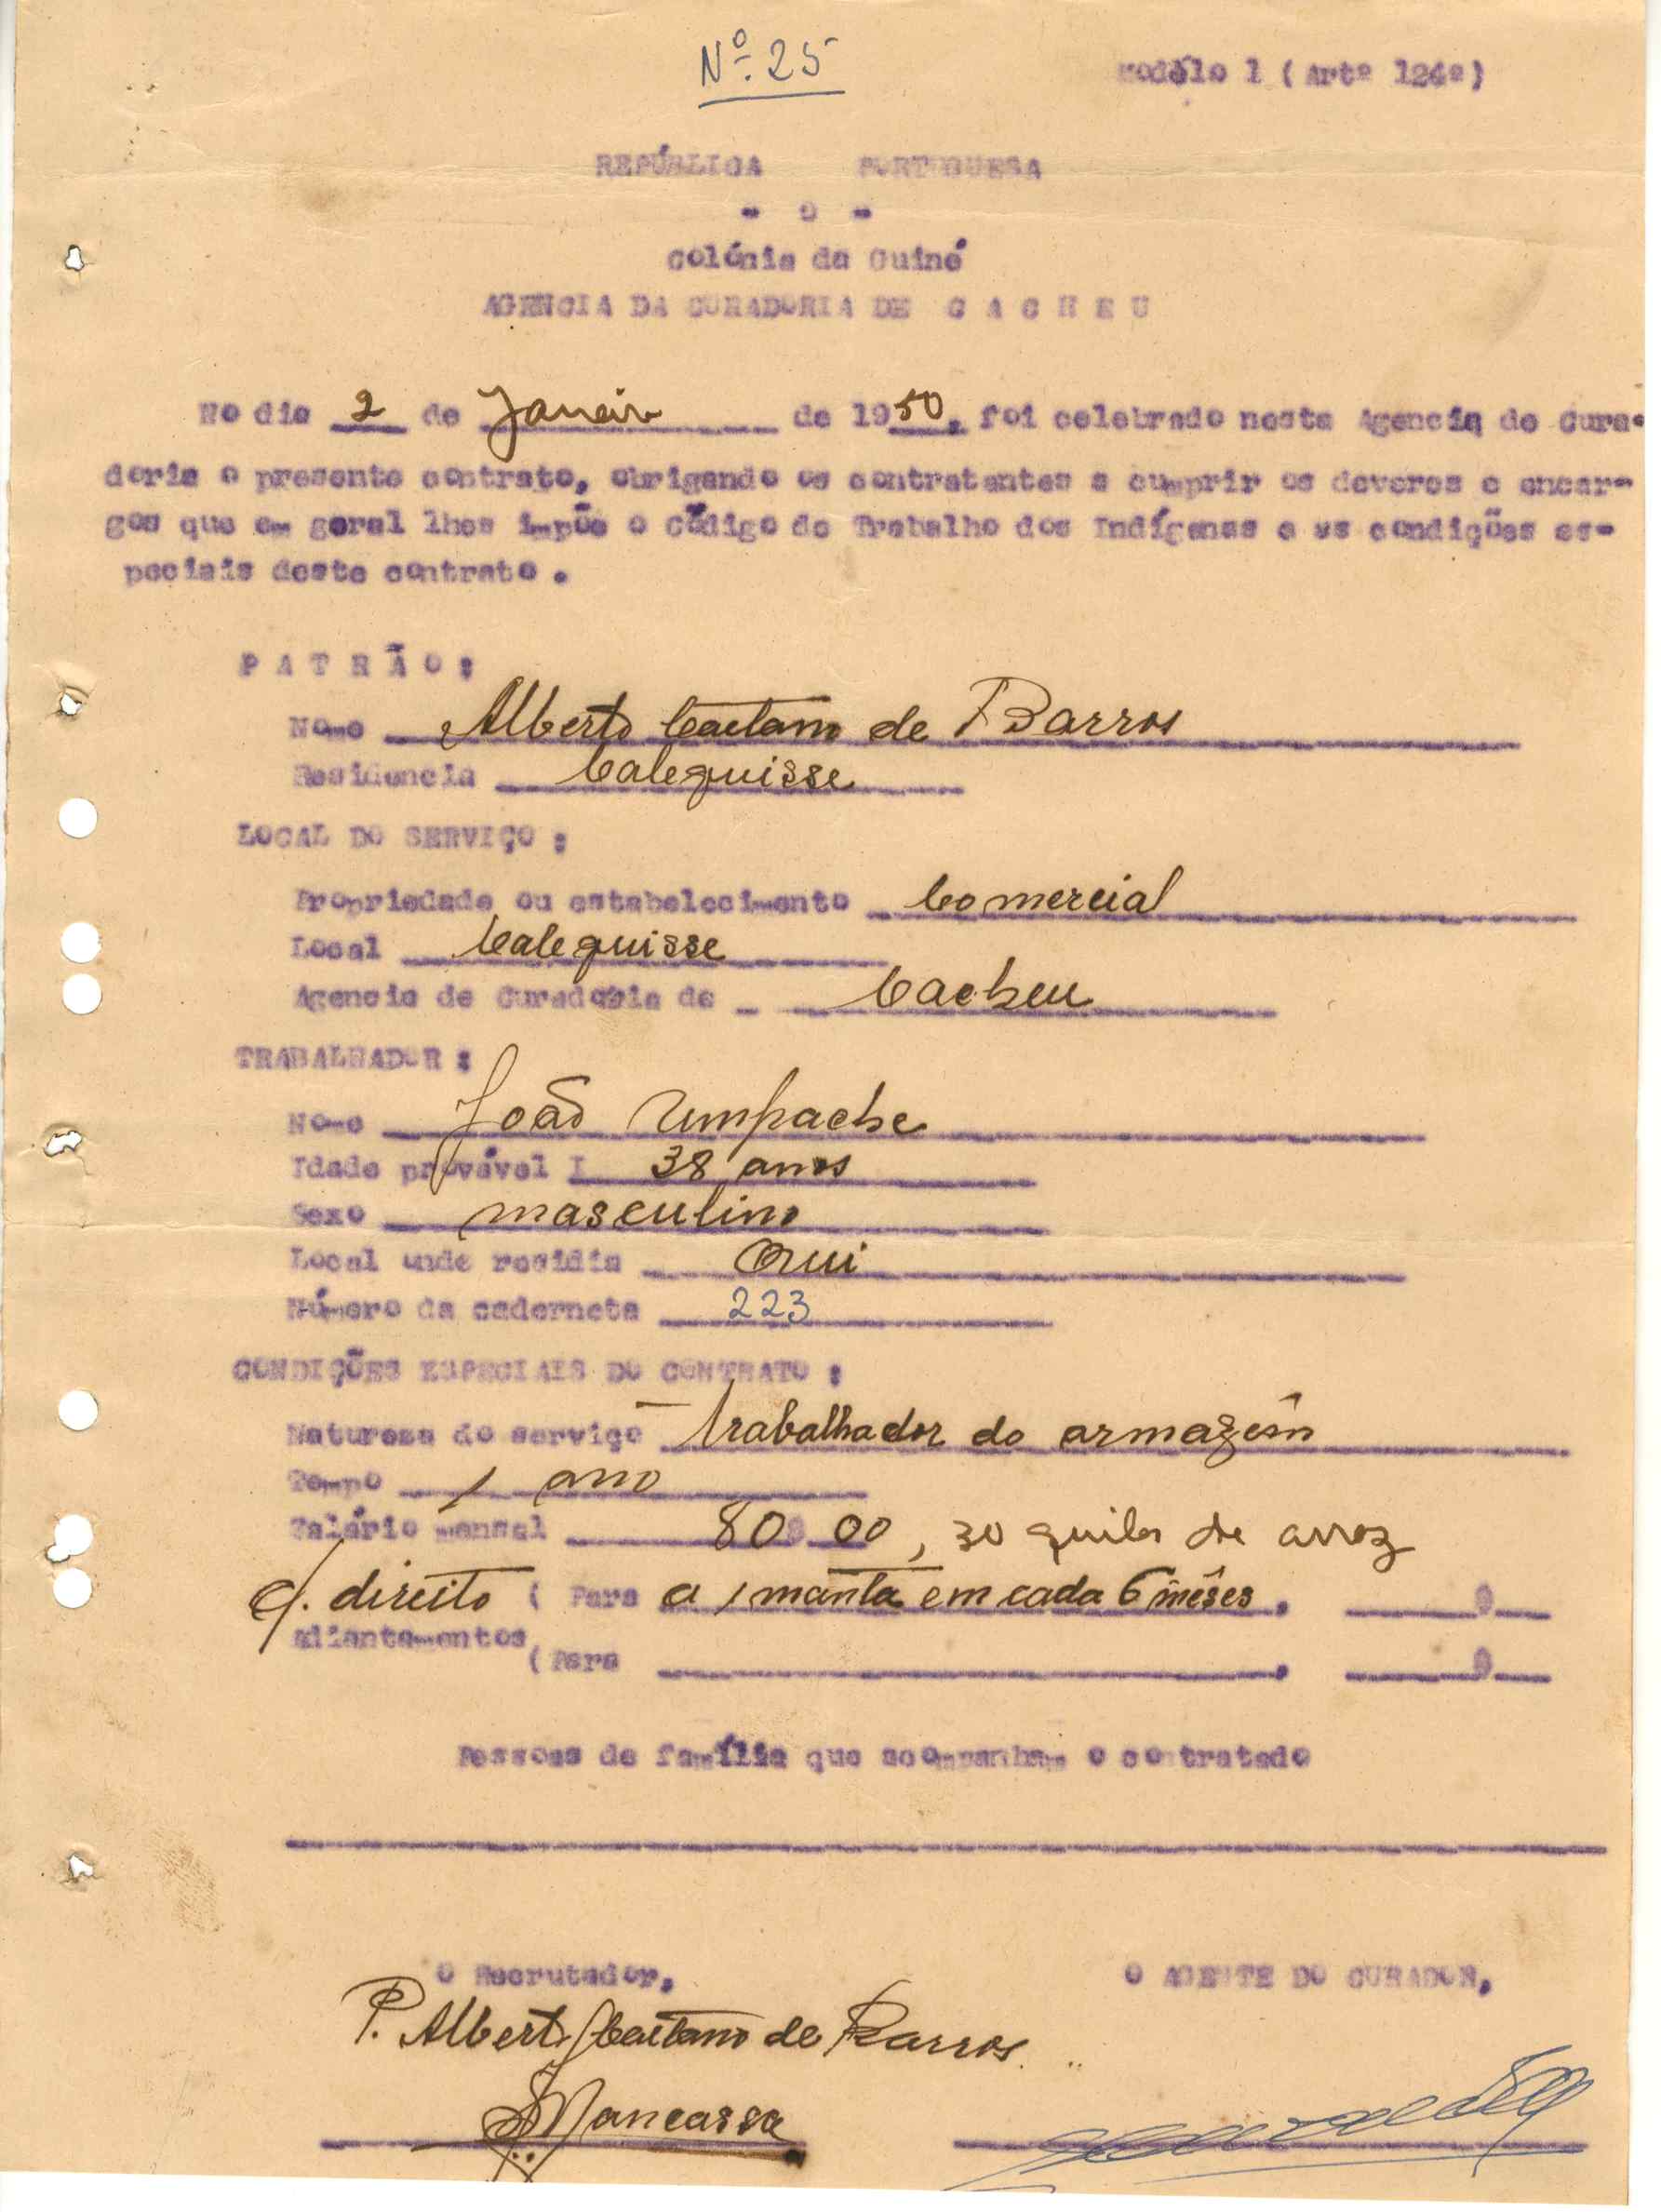 Nº. 25
Modêlo 1 ( Artº 124º)
REPÚBLICA PORTUGUESA
- o -
Colónia da Guiné
AGENCIA DA CURADORIA DE C A C H E U
No dia 2 de Janeiro de 1950, foi celebrado nesta Agencia de Cura-
doria o presente contrato, obrigando os contratantes a cumprir os deveres e encar-
gos que em geral lhes impõe o Código do Trabalho dos Indígenas e as condições es-
peciais deste contrato.
P A T R Ã O :
Nome Alberto Caetano de Barros
Residencia Calequisse
LOCAL DO SERVIÇO :
Propriedade ou estabelecimento Comercial
Local Calequisse
Agencia de Curadoria de Cacheu
TRABALHADOR :
Nome João Umpache
Idade provável I 38 anos
Sexo masculino
Local onde residia
Número da caderneta 223
CONDIÇÕES ESPECIAIS DO CONTRATO :
Natureza do serviço trabalhador do armazêm
Tempo 1 ano
Salário mensal 80$00, 30 quilos de arroz
c/. direito ( Para a 1 manta em cada 6 mêses, $
Adiantamentos
( Para , $
Pessoas de família que acompanham o contratado
O Recrutador,
O AGENTE DO CURADOR,
P. Alberto Caetano de Barros
Mancassa